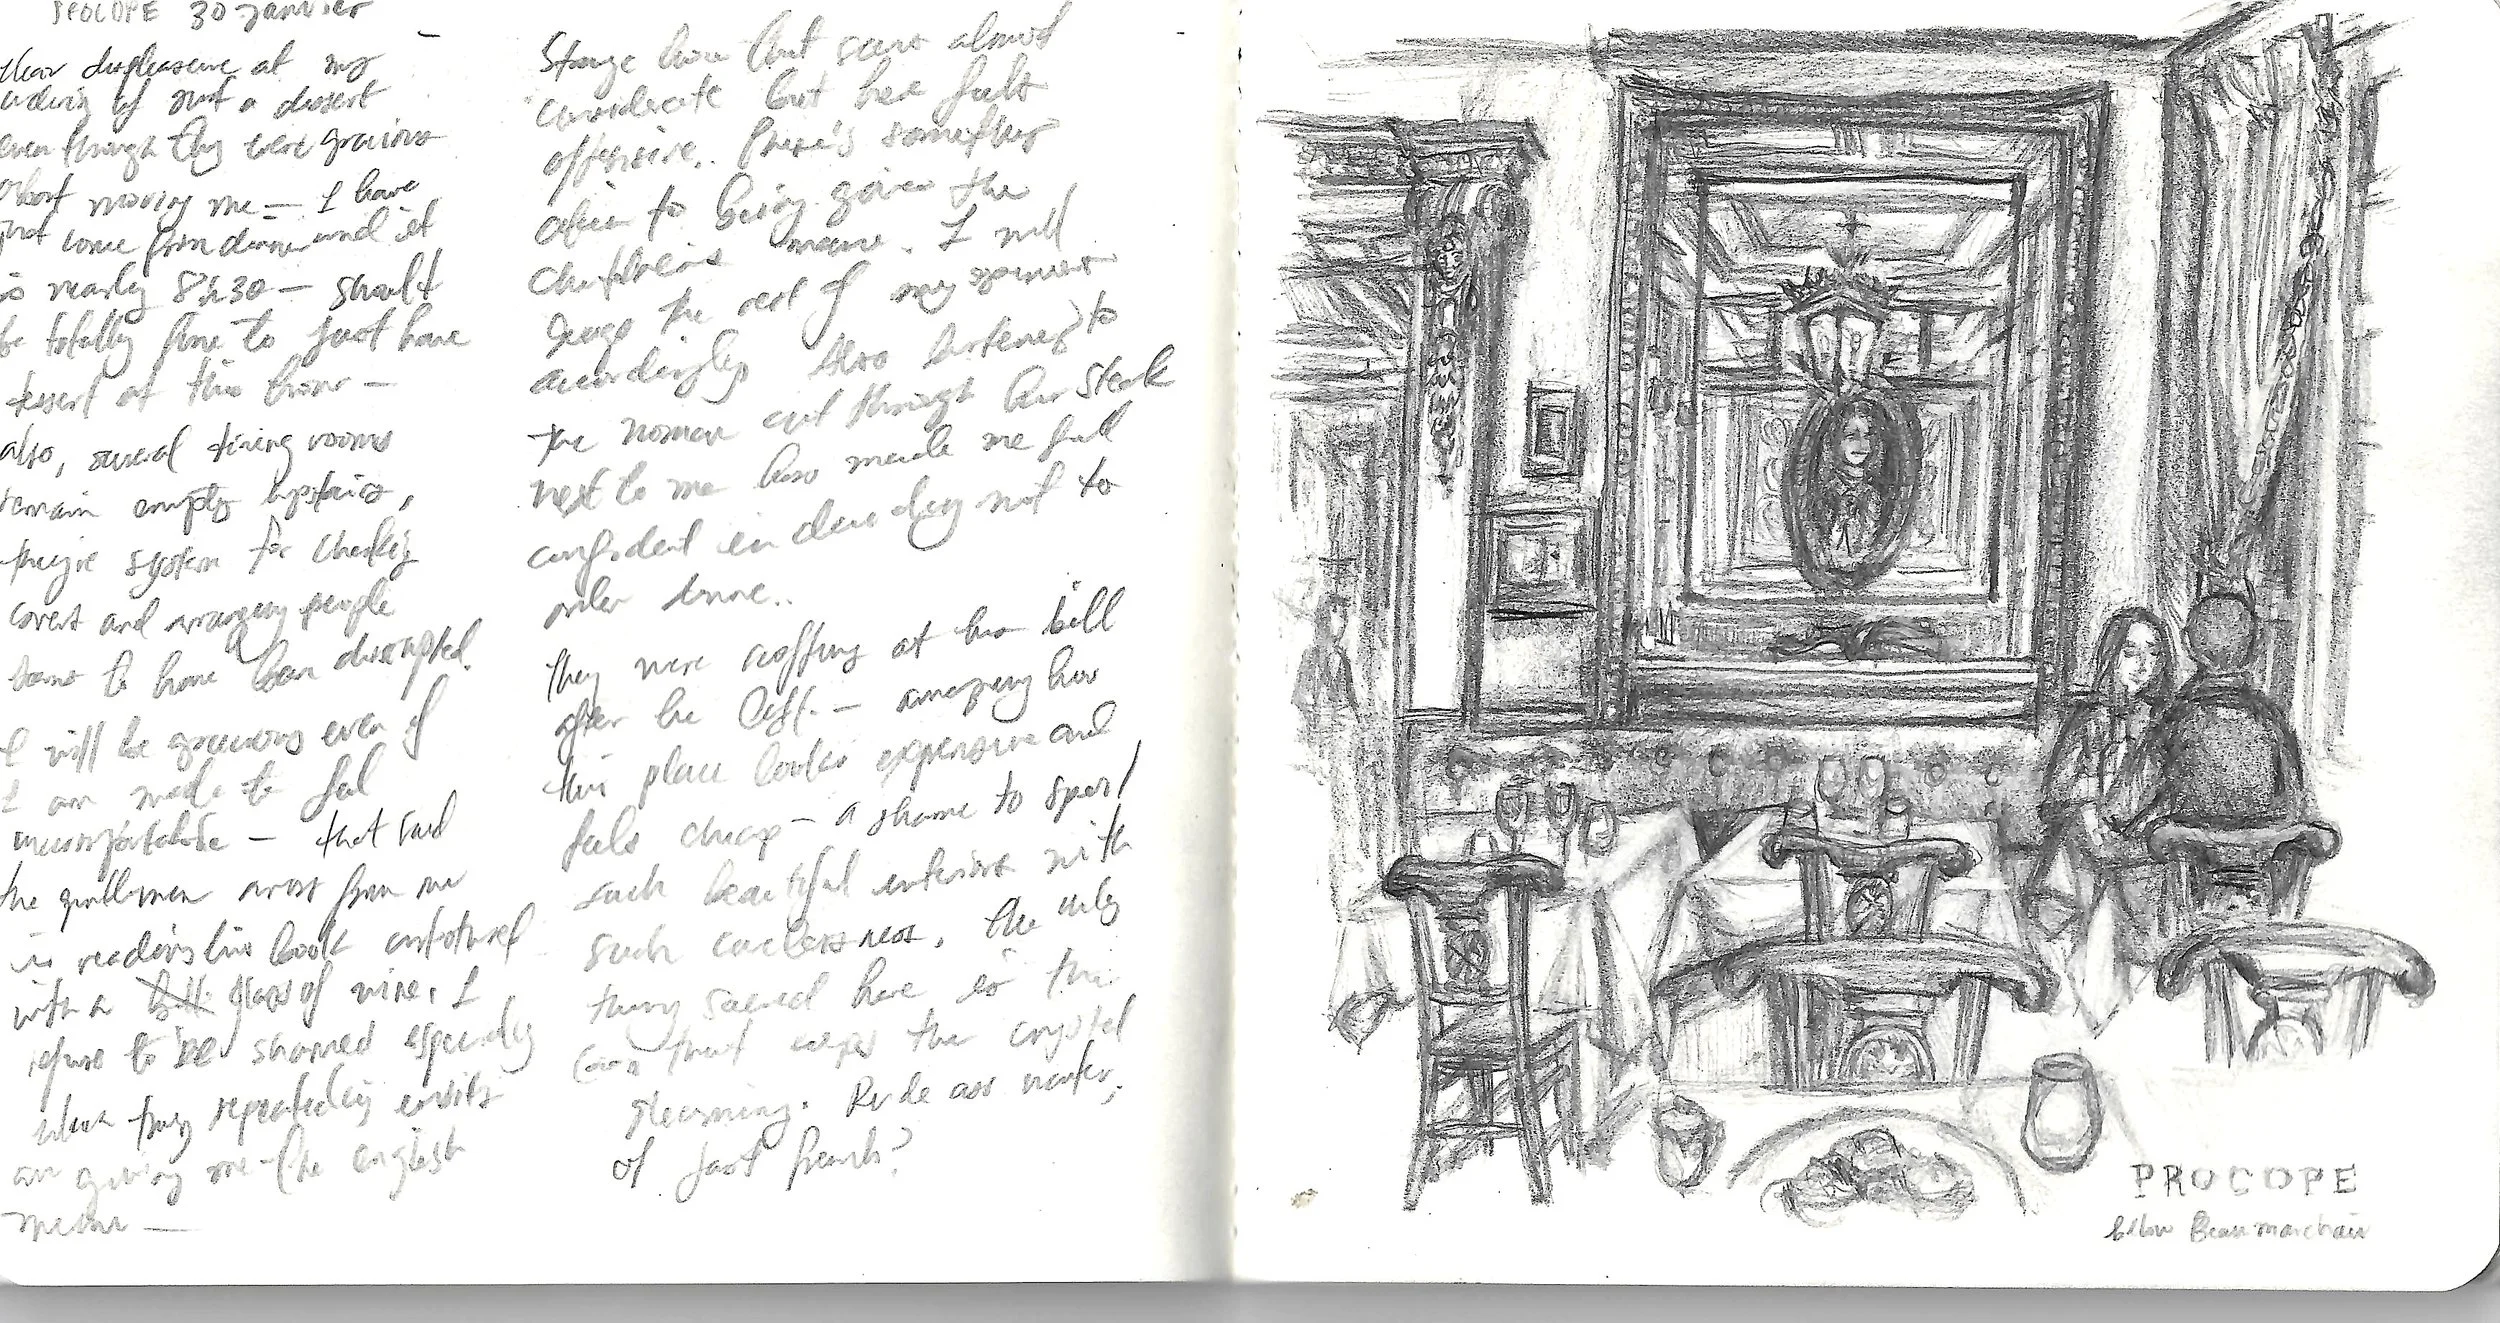 PROCOPE 30 Janvier
clear displeasure at my
ordering of just a dessert
even though they were gracious
about moving me — I have
just come from dinner and it
is nearly 8h30 — should
be totally fine to just have
dessert at this hour —
also, several dining rooms
remain empty upstairs,
they're system for checking
covert and arranging people
seems to have been disrupted.
I will be generous even if
I am made to feel
uncomfortable — that said
the gentleman across from me
is reading his book
with a glass of wine. I
refuse to be shamed especially
when they repeatedly
giving me the english
menu —
Strange how that scene almost
considerate but here felt
offensive.. There's something
to being given the
menu. I will
the rest of my
accordingly. Also listening to
the woman cut through her steak
next to me also made me feel
confident in not to
order dinner..
They were scoffing at his bill
after he left. — amazing how
this place looks expensive and
feels cheap — a shame to spoil
such beautiful interiors with
such carelessness. The only
thing sacred here is the
that wipes the crystal
gleaming. Rude ass waiter,
or just french?
PROCOPE
below Beaumarchais